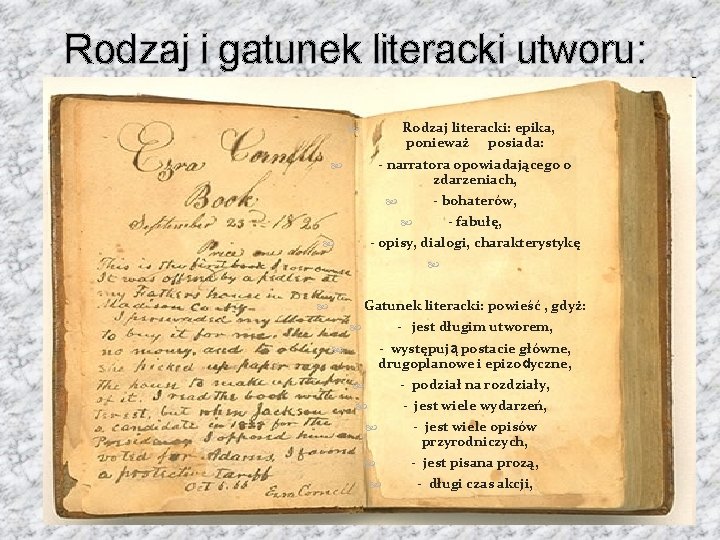 Rodzaj i gatunek literacki utworu:
Ezra Cornell's
Book
September 23rd 1826
Price one dollar
This is the first book I ever owned
It was offered by a pedler at
my Fathers house in DeRuyter
Madison County.
I persuaded my Mother
to buy it for me. She had
no money, and to oblige me
picked up paper rags about
the house to make up the price
of it. I read the book with in-
terest, but when Jackson was
a candidate in 1828 for the
Presidency I opposed him and
voted for Adams, I favored
a protective tariff
Oct 6.66 Ezra Cornell
Rodzaj literacki: epika,
ponieważ posiada:
- narratora opowiadającego o
zdarzeniach,
- bohaterów,
- fabułę,
- opisy, dialogi, charakterystykę
Gatunek literacki: powieść , gdyż:
- jest długim utworem,
- występują postacie główne,
drugoplanowe i epizodyczne,
- podział na rozdziały,
- jest wiele wydarzeń,
- jest wiele opisów
przyrodniczych,
- jest pisana prozą,
- długi czas akcji,